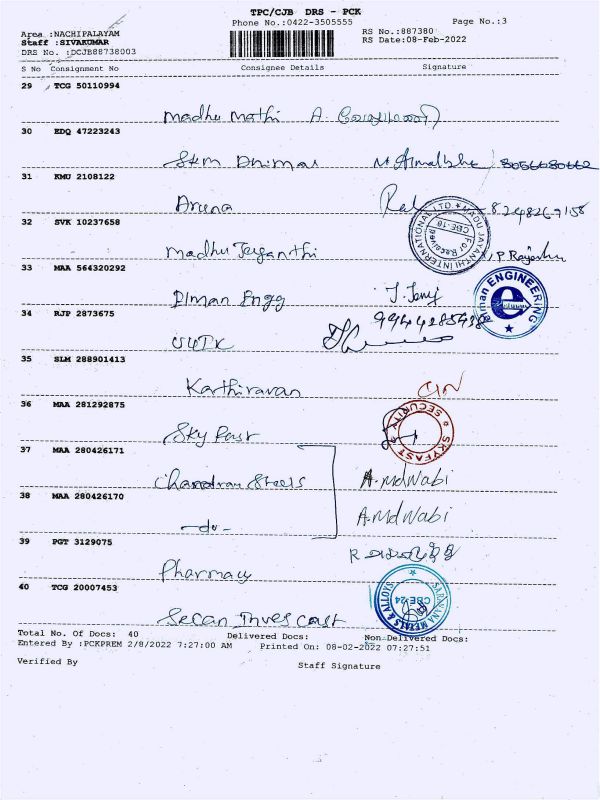 TPC/CJB DRS - PCK
Phone No.:0422-3505555
Page No.:3
Area :NACHIPALAYAM
Staff :SIVAKUMAR
DRS No. :DCJB88738003
RS No.:887380
RS Date:08-Feb-2022
S No Consignment No Consignee Details Signature
29 TCG 50110994
Madhu Mathi A.
30 EDQ 47223243
SKM
31 KMU 2108122
Aruna
32 SVK 10237658
Madhu Jeyanthi P. Rajesh
MADU JAYANTHI INTERNATIONAL LTD.
CBE-18
33 MAA 564320292
Diman Engg
Diman ENGINEERING
e
34 RJP 2873675
35 SLM 288901413
Kathiravan
36 MAA 281292875
Sky Fast
SKYFAST SECURITY
37 MAA 280426171
Chandran Steels A.MdNabi
38 MAA 280426170
-do- A.MdNabi
39 PGT 3129075
Pharmacy
40 TCG 20007453
Secan Invescast
SARAVANA METALS & ALLOYS
CBE-24
Total No. Of Docs: 40 Delivered Docs: Non-Delivered Docs:
Entered By :PCKPREM 2/8/2022 7:27:00 AM Printed On: 08-02-2022 07:27:51
Verified By Staff Signature